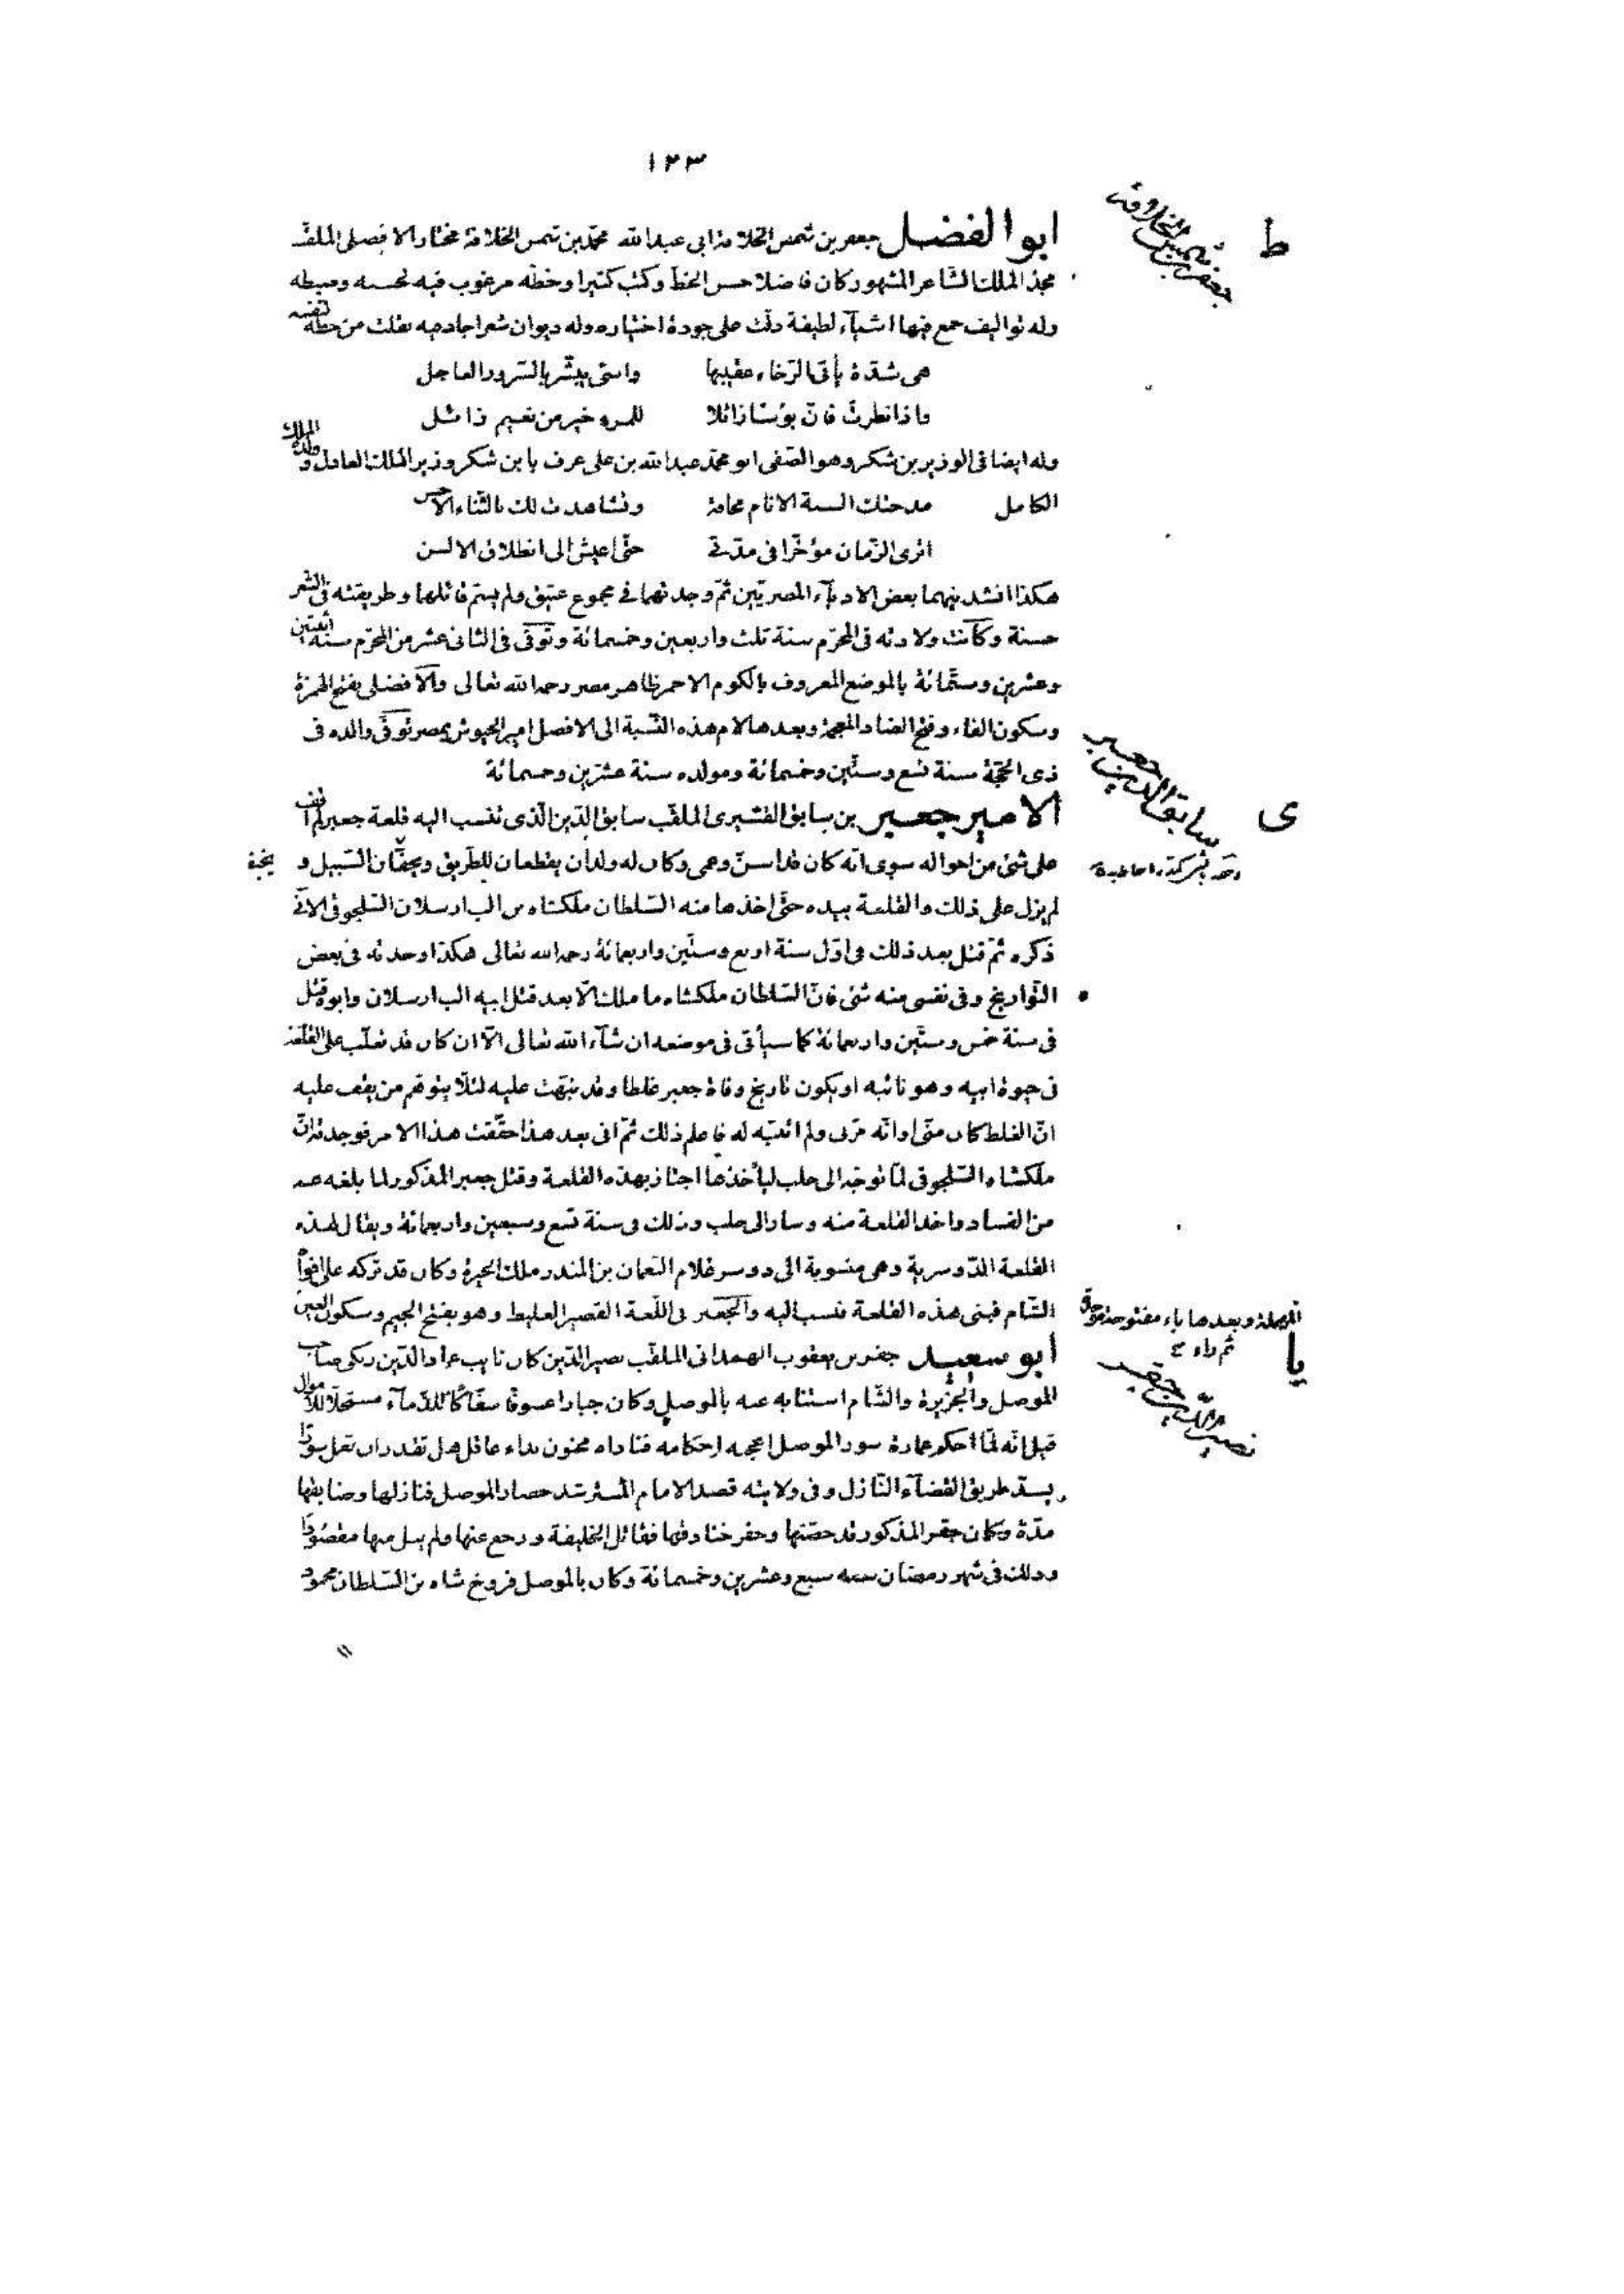 ١٢٣
ط
جعفر بن شمس الخلافة
ابو الفضل جعفر بن شمس الخلافة ابى عبد الله محمد بن شمس الخلافة مختار الافضلى الملقب
مجد الملك الشاعر المشهور كان فاضلا حسن الخط وكتب كثيرا وخطه مرغوب فيه لحسنه وضبطه
وله تواليف جمع فيها اشياء لطيفة دلت على جودة اختياره وله ديوان شعر اجاد فيه نقلت من خطه لنفسه
هى شدة يأتى الرخاء عقيبها واسى يبشر بالسرور العاجل
واذا نظرت فان بؤسا زائلا للمرء خير من نعيم زائل
وله ايضا فى الوزير بن شكر وهو الصفى ابو محمد عبد الله بن على عرف بابن شكر وزير الملك العادل وولده الملك
الكامل مدحتك السنة الانام مخافة وتشاهدت لك بالثناء الاحسن
اترى الزمان مؤخرا فى مدتى حتى اعيش الى انطلاق الالسن
هكذا انشدنيهما بعض الادباء المصريين ثم وجدتهما فى مجموع عتيق ولم يسم قائلهما وطريقته فى الشعر
حسنة وكانت ولادته فى المحرم سنة ثلث واربعين وخمسمائة وتوفى فى الثانى عشر من المحرم سنة اثنتين
وعشرين وستمائة بالموضع المعروف بالكوم الاحمر ظاهر مصر رحمه الله تعالى والافضلى بفتح الهمزة
وسكون الفاء وفتح الضاد المعجمة وبعدها لام هذه النسبة الى الافضل امير الجيوش بمصر توفى والده فى
ذى الحجة سنة تسع وستين وخمسمائة ومولده سنة عشرين وخمسمائة
ى
سابق الدين جعبر
الامير جعبر بن سابق القشيرى الملقب سابق الدين الذى تنسب اليه قلعة جعبر لم اقف
على شئ من احواله سوى انه كان قد اسن وعمى وكان له ولدان يقطعان الطريق ويخيفان السبيل و
لم يزل على ذلك والقلعة بيده حتى اخذها منه السلطان ملكشاه بن الب ارسلان السلجوقى الاتى
ذكره ثم قتل بعد ذلك فى اول سنة اربع وستين واربعمائة رحمه الله تعالى هكذا وجدته فى بعض
التواريخ وفى نفسى منه شئ فان السلطان ملكشاه ما ملك الا بعد قتل ابيه الب ارسلان وابوه قتل
فى سنة خمس وستين واربعمائة كما سيأتى فى موضعه ان شاء الله تعالى الا ان كان قد تغلب على القلعة
فى حيوة ابيه وهو نائبه او يكون تاريخ وفاة جعبر غلطا وقد نبهت عليه لئلا يتوهم من يقف عليه
ان الغلط كان منى او انه مر بى ولم انتبه له فاعلم ذلك ثم انى بعد هذا حققت هذا الامر فوجدته ان
ملكشاه السلجوقى لما توجه الى حلب ليأخذها اجتاز بهذه القلعة وقتل جعبر المذكور لما بلغه عنه
من الفساد واخذ القلعة منه وسار الى حلب وذلك فى سنة تسع وسبعين واربعمائة ويقال لهذه
القلعة الدوسرية وهى منسوبة الى دوسر غلام النعمان بن المنذر ملك الحيرة وكان قد تركه على افواه
الشام فبنى هذه القلعة فنسب اليه والجعبر فى اللغة القصير الغليظ وهو بفتح الجيم وسكون العين
المهملة وبعدها باء مفتوحة موحدة
ثم راء
يا
نصير الدين جقر
أبو سعيد جقر بن يعقوب الهمدانى الملقب نصير الدين كان نايب عماد الدين زنكى صاحب
الموصل والجزيرة والشام استنابه عنه بالموصل وكان جبارا عسوفا سفاكا للدماء مستحلا للاموال
قيل انه لما احكم عمارة سور الموصل اعجبه احكامه فناداه مجنون نداء عاقل هل تقدر ان تعمل سورا
يسد طريق القضاء النازل وفى ولايته قصد الامام المسترشد حصار الموصل فنازلها وضايقها
مدة وكان جقر المذكور قد حصنها وحفر خنادقها فقاتل الخليفة ورجع عنها ولم ينل منها مقصودا
وذلك فى شهر رمضان سنة سبع وعشرين وخمسمائة وكان بالموصل فروخ شاه بن السلطان محمود